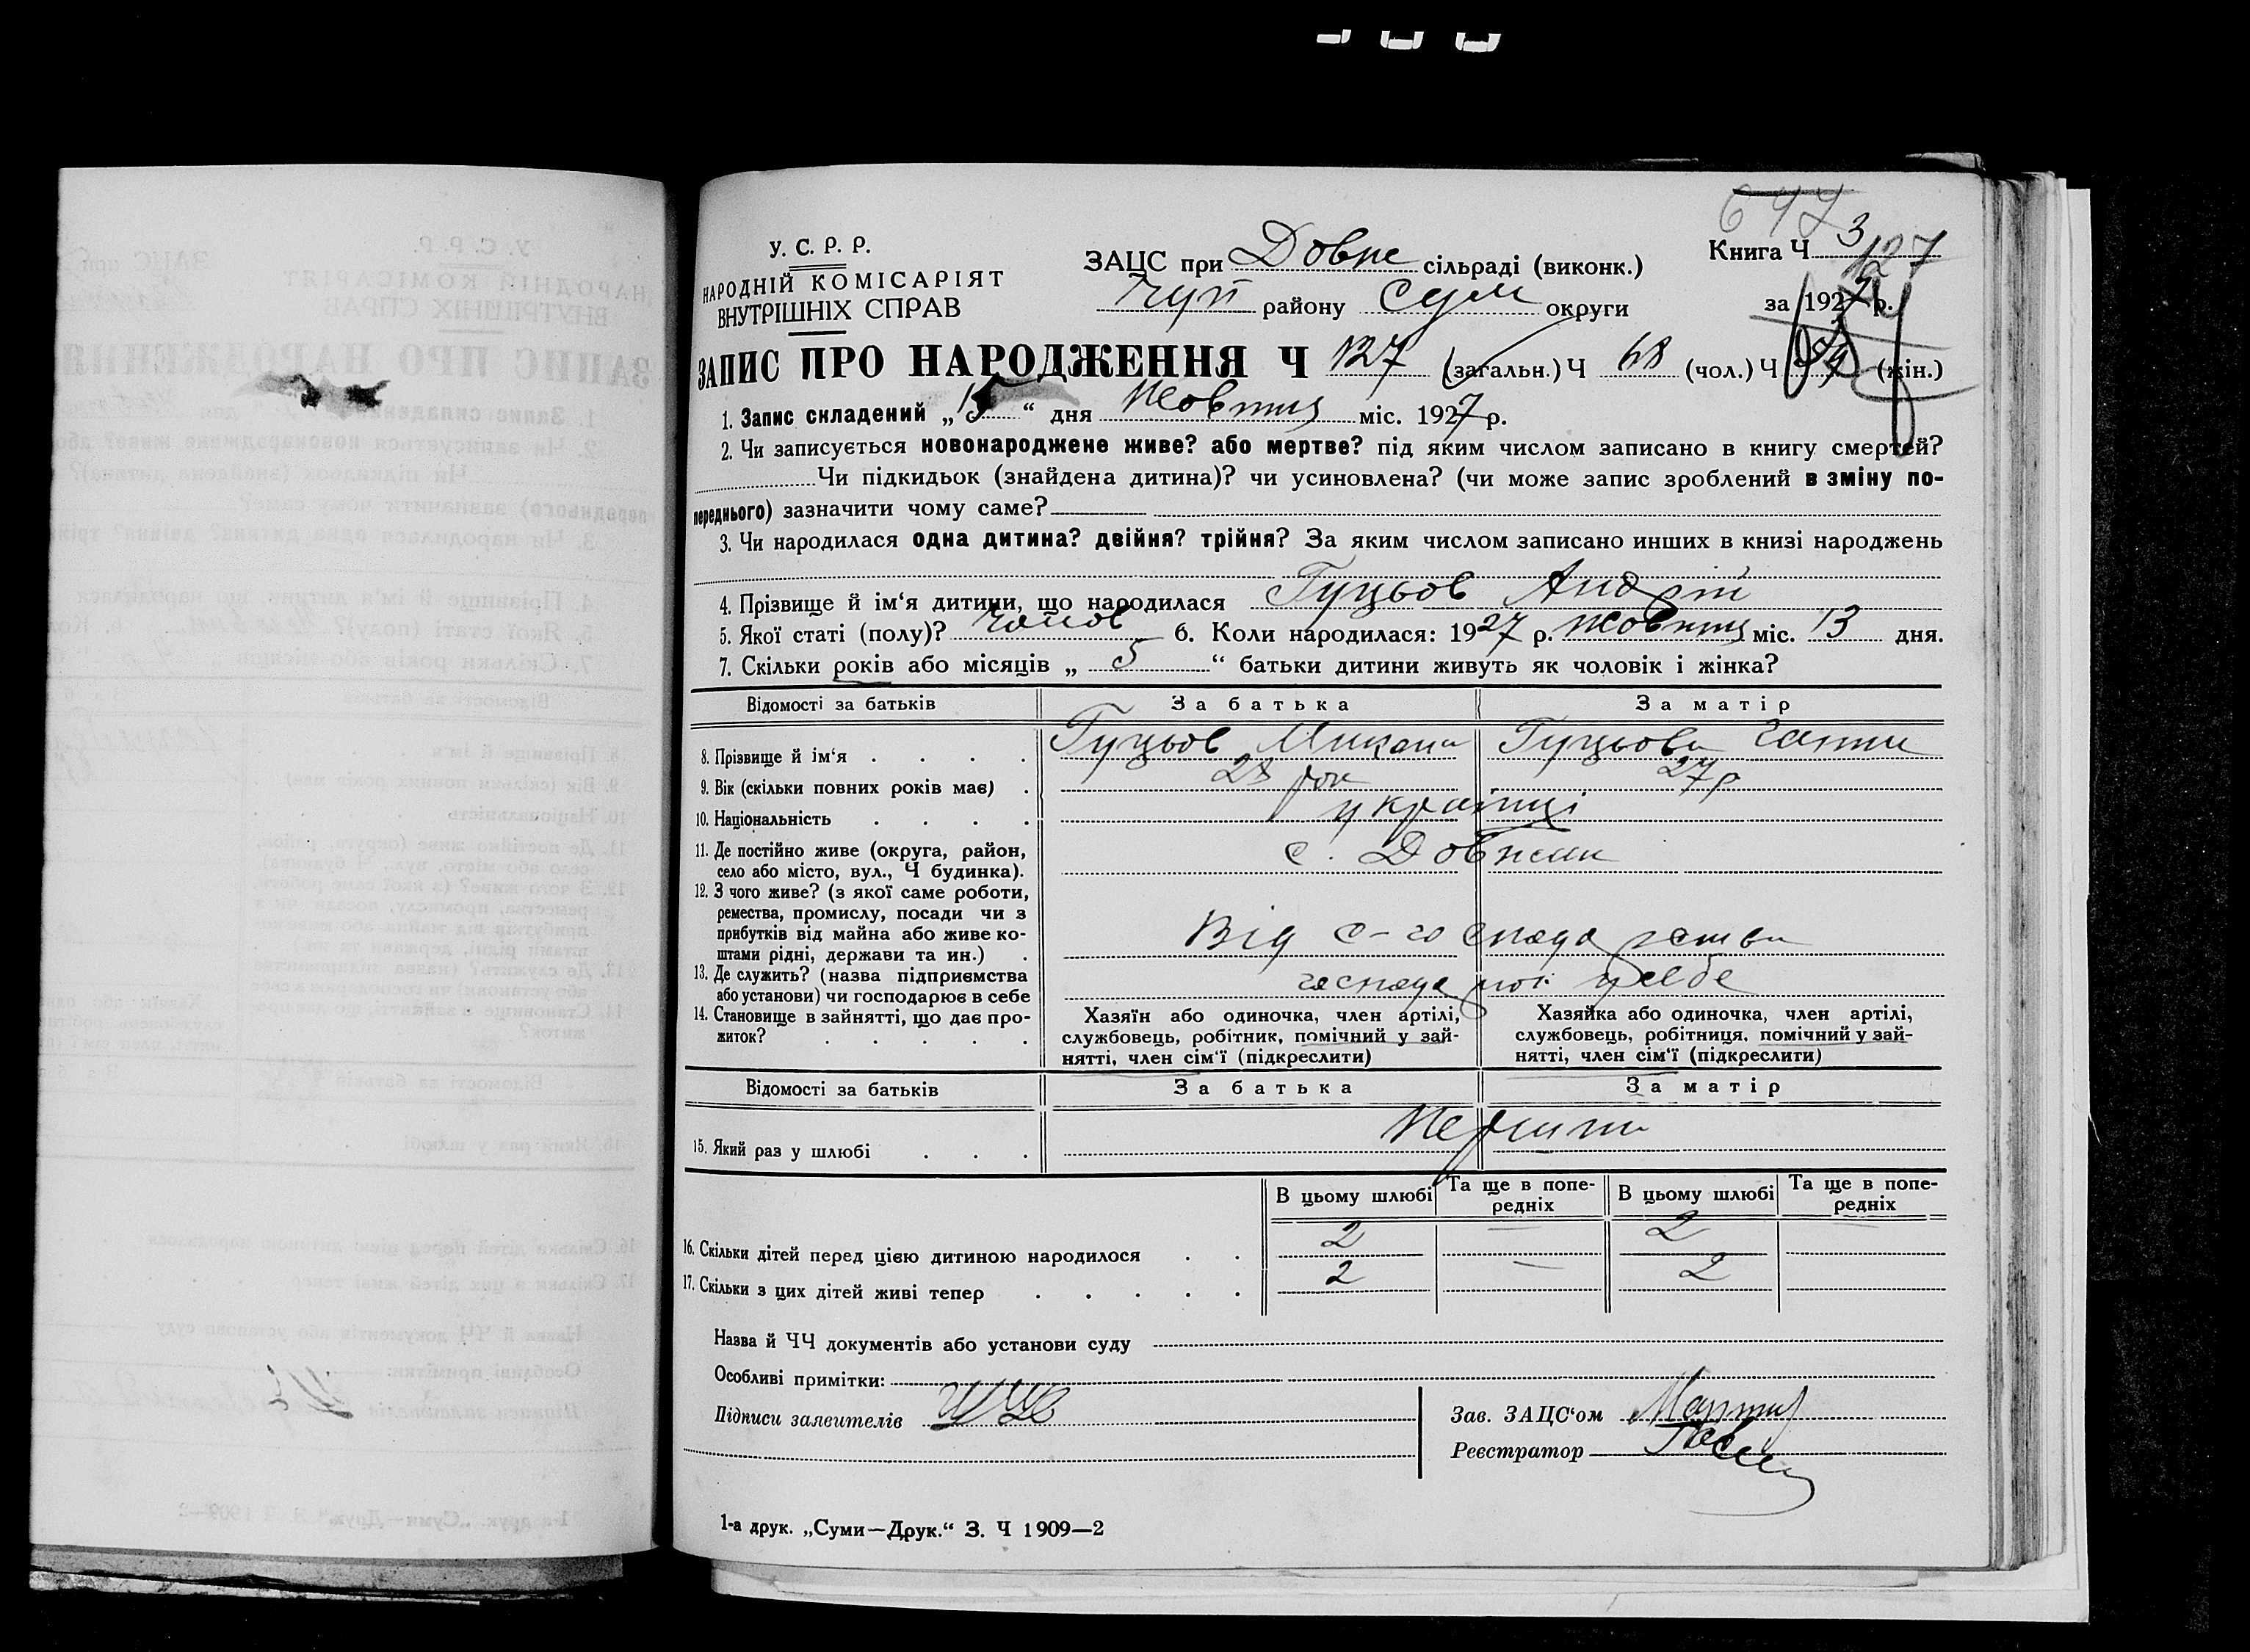 У. С. Р. Р.
НАРОДНІЙ КОМІСАРІЯТ
ВНУТРІШНІХ СПРАВ
ЗАЦС при Довже сільраді (виконк.)
район у Сум округи
Книга Ч 3
127
за 1927 р.
ЗАПИС ПРО НАРОДЖЕННЯ Ч 127 (загальн.) Ч 68 (чол.) Ч 59 (жін.)
1. Запис складений „15“ дня Жовтня міс. 1927 р.
2. Чи записується новонароджене живе? або мертве? під яким числом записано в книгу смертей?
Чи підкидьок (знайдена дитина)? чи усиновлена? (чи може запис зроблений в зміну по-
переднього) зазначити чому саме?
3. Чи народилася одна дитина? двійня? трійня? За яким числом записано инших в книзі народжень
4. Прізвище й ім‘я дитини, що народилася Гуцьов Андрій
5. Якої статі (полу)? чолов 6. Коли народилася: 1927 р. Жовтня міс. 13 дня.
7. Скільки років або місяців „ 5 “ батьки дитини живуть як чоловік і жінка?
Відомості за батьків За батька За матір
8. Прізвище й ім‘я . . . . Гуцьов Микола Гуцьова Ганна
9. Вік (скільки повних років має) . 28 рок 27 р
10. Національність . . . . українці
11. Де постійно живе (округа, район,
село або місто, вул., Ч будинка). с. Довжик
12. З чого живе? (з якої саме роботи,
ремества, промислу, посади чи з
прибутків від майна або живе ко-
штами рідні, держави та ин.) . Від с-господарства
13. Де служить? (назва підприємства
або установи) чи господарює в себе у себе
14. Становище в зайнятті, що дає про-
житок? . . . . .
Хазяїн або одиночка, член артілі,
службовець, робітник, помічний у зай-
нятті, член сім‘ї (підкреслити)
Хазяйка або одиночка, член артілі,
службовець, робітниця, помічний у зай-
нятті, член сім‘ї (підкреслити)
Відомості за батьків За батька За матір
15. Який раз у шлюбі . . .
В цьому шлюбі Та ще в попе-
редніх В цьому шлюбі Та ще в попе-
редніх
16. Скільки дітей перед цією дитиною народилося . . 2 — 2 —
17. Скільки з цих дітей живі тепер . . . . . 2 — 2
Назва й ЧЧ документів або установи суду
Особливі примітки:
Підписи заявителів
Зав. ЗАЦС‘ом
Реєстратор
1-а друк. „Суми—Друк.“ З. Ч 1909—2